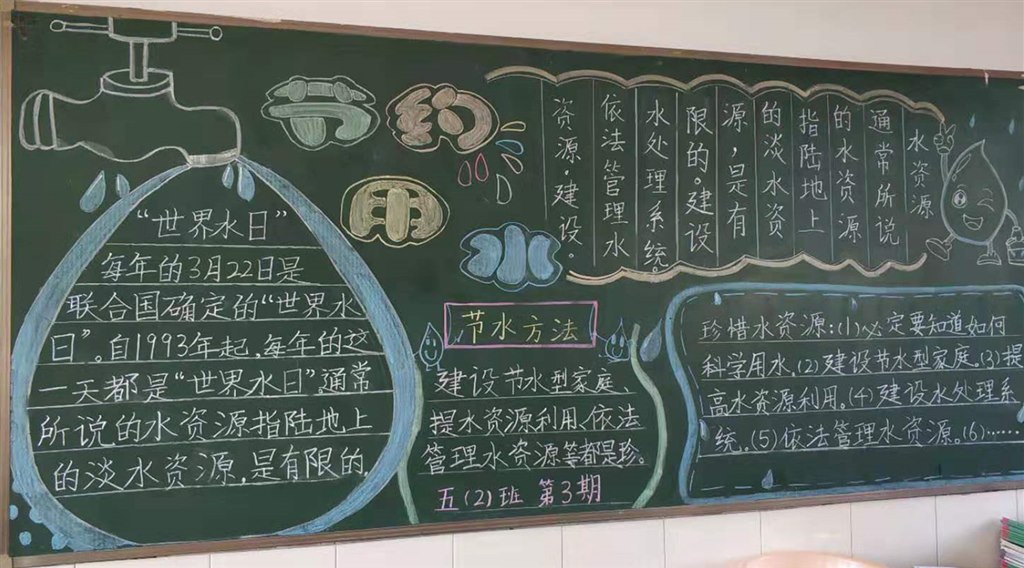 节约
用水
“世界水日”
每年的3月22日是
联合国确定的“世界水
日”。自1993年起,每年的这
一天都是“世界水日”通常
所说的水资源指陆地上
的淡水资源,是有限的。
水资源
通常所说
的水资源
指陆地上
的淡水资
源,是有
限的。建设
水处理系统。
依法管理水
资源.建设。
节水方法
建设节水型家庭、
提水资源利用、依法
管理水资源等都是珍。
五(2)班 第3期
珍惜水资源:(1)必定要知道如何
科学用水.(2)建设节水型家庭.(3)提
高水资源利用.(4)建设水处理系
统.(5)依法管理水资源.(6)……